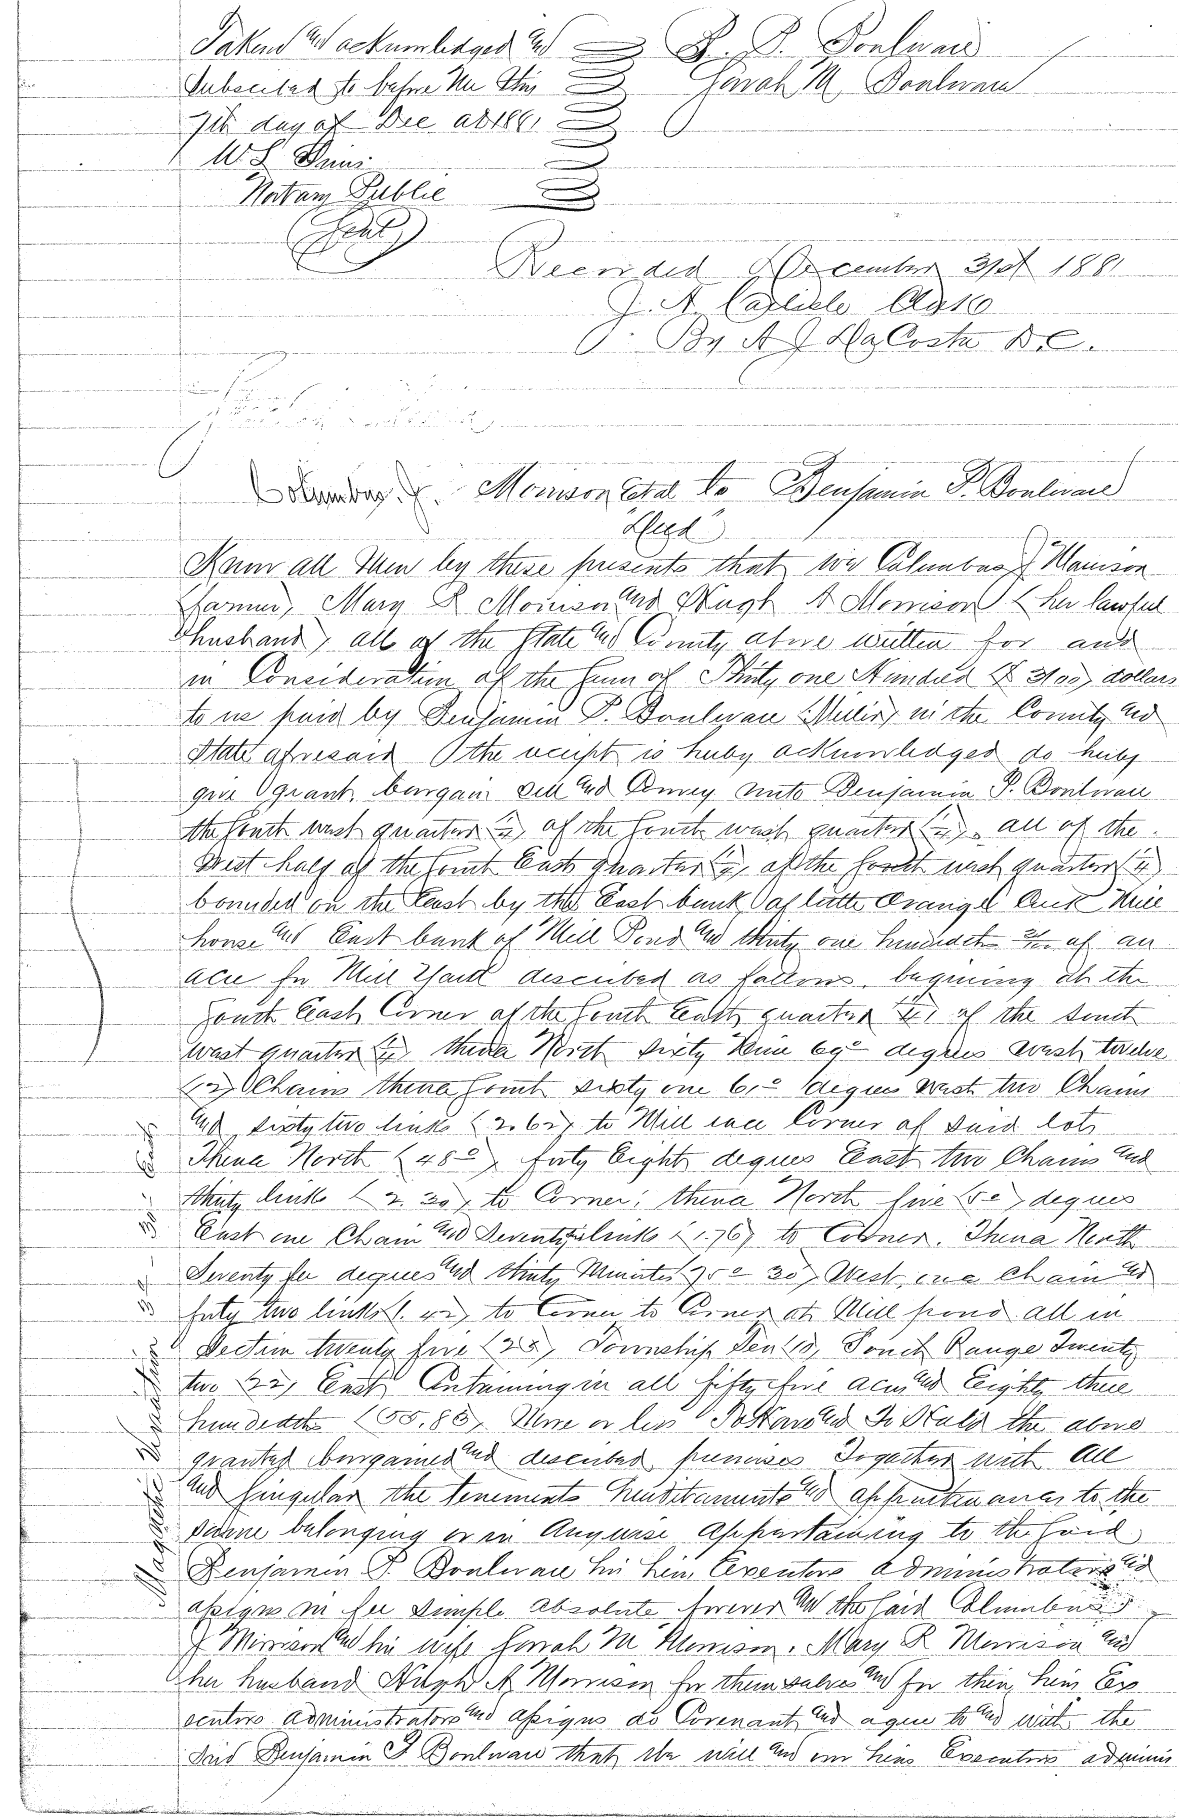 Taken and acknowledged and
Subscribed to before me this
7th day of Dec AD 1881
W L
Notary Public
(Seal)
B. P. Boulware
Sarah M. Boulware
Recorded December 31st 1881
J. A. Carlisle Clerk
By A J DaCosta D.C.
Columbus. J. Morrison et al to Benjamin P. Boulware
"Deed"
Know all Men by these presents that we Columbus J Morrison
(farmer) Mary R Morrison and Hugh A Morrison (her lawful
husband) all of the State and County above written for and
in Consideration of the Sum of Thirty one Hundred dollars
to us paid by Benjamin P. Boulware (Miller) in the County and
State aforesaid the receipt is hereby acknowledged do hereby
give grant, bargain sell and Convey unto Benjamin P. Boulware
the South west quarter (1/4) of the South west quarter (1/4). all of the
West half of the South East quarter (1/4) of the South west quarter (1/4)
bounded on the East by the East bank of little Orange Creek Mill
house and East bank of Mill Pond and thirty one hundredths 31/100 of an
acre for Mill Yard described as follows. begining at the
South East Corner of the South East quarter 1/4 of the South
west quarter (1/4) thence North sixty Nine 69° degrees West twelve
(12) Chains thence South sixty one 61° degrees West two Chains
and sixty two links (2.62) to Mill race Corner of said lots
Thence North (48°) forty Eight degrees East two Chains and
thirty links (2.30) to Corner; thence North five (5°) degrees
East one Chain and Seventy links (1.76) to Corner. Thence North
Seventy five degrees and thirty Minutes 75° 30' West, one Chain and
forty two links (1.42) to Corner to Corner at Mill pond all in
Section twenty five (25) Township Ten (10) South Range Twenty
two (22) East Containing in all fifty five acres and Eighty three
hundredths (55.83) More or less To Have and To Hold the above
granted bargained and described premises Together with all
and singular the tenements hereditaments and appurtenances to the
same belonging or in Anywise appertaining to the Said
Benjamin P. Boulware his heirs Executors administrators and
assigns in fee simple absolute forever and the Said Columbus
J Morrison and his wife Sarah M Morrison. Mary R Morrison and
her husband Hugh A Morrison for themselves and for their heirs Ex
ecutors administrators and assigns do Covenant and agree to and with the
Said Benjamin P Boulware that we will and our heirs Executors adminis
Magnetic Variation 3° - 30' East